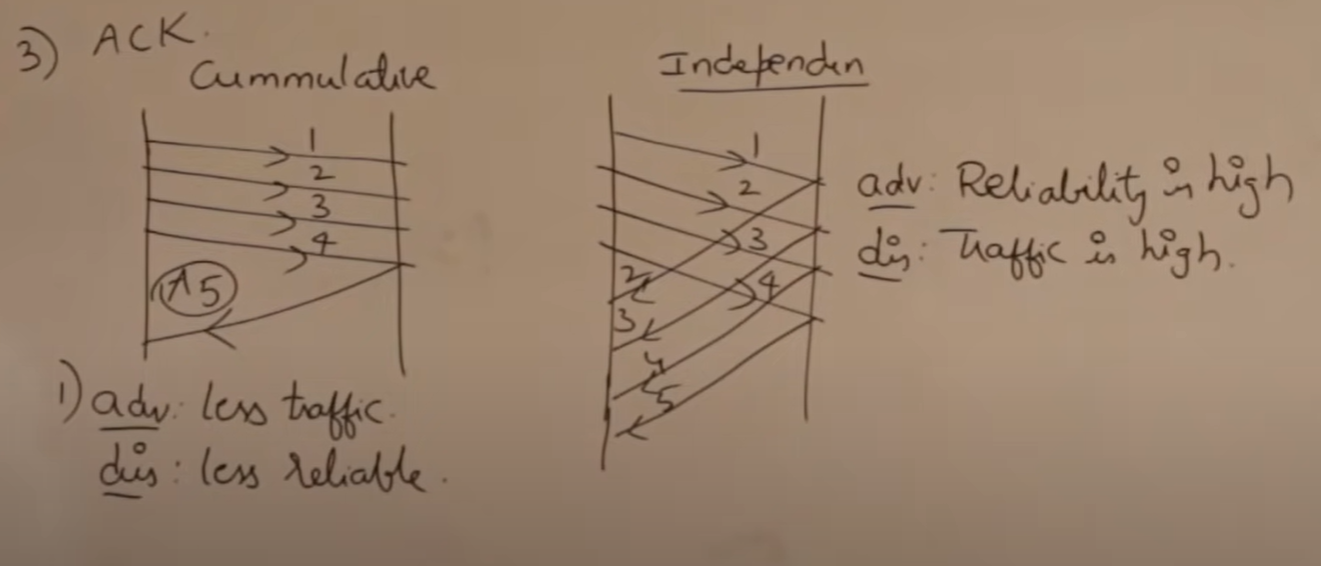 3) ACK.
Cummulative
1
2
3
4
A5
1) adv: less traffic.
dis: less reliable.
Independen
1
2
3
4
2
3
4
5
adv: Reliability is high
dis: Traffic is high.